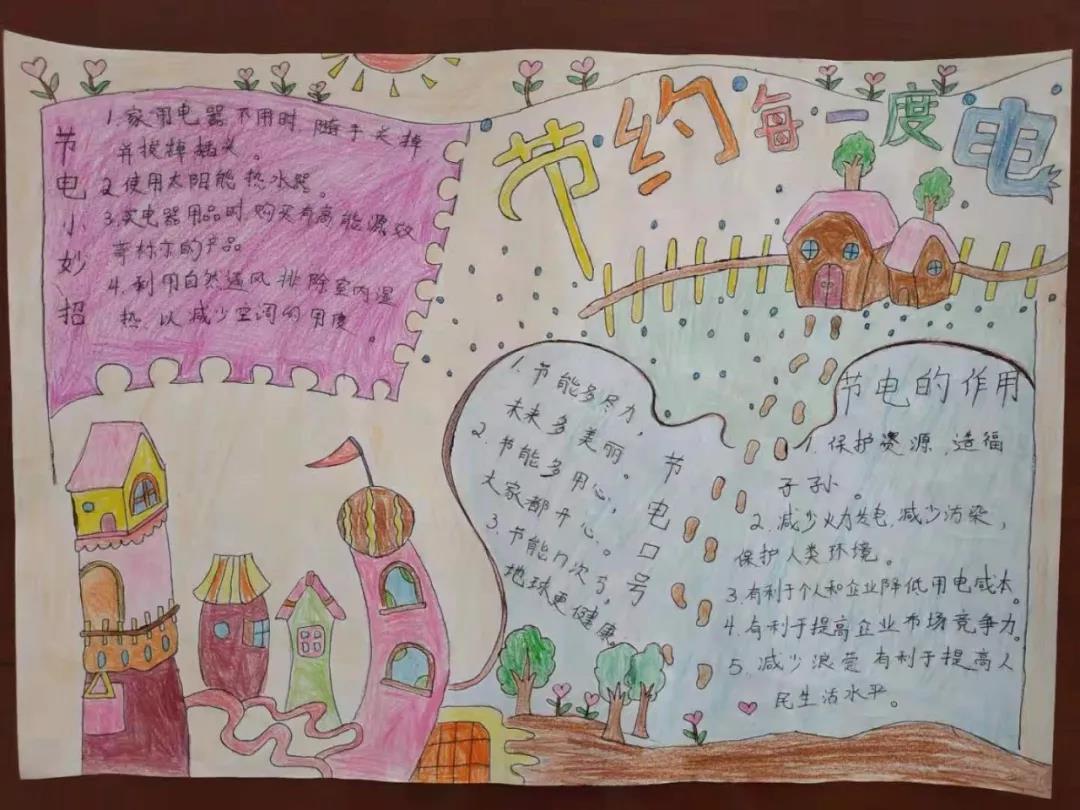 节约每一度电
节电小妙招
1.家用电器不用时,随手关掉
并拔掉插头。
2.使用太阳能热水器。
3.买电器用品时,购买有高能源效
等标示的产品
4.利用自然通风排除室内湿
热,以减少空调的用度。
节电口号
1.节能多尽力,
未来多美丽。
2.节能多用心,
大家都开心。
3.节能几次了,
地球更健康。
节电的作用
1.保护资源,造福
子孙。
2.减少火力发电,减少污染,
保护人类环境。
3.有利于个人和企业降低用电成本。
4.有利于提高企业市场竞争力。
5.减少浪费有利于提高人
民生活水平。